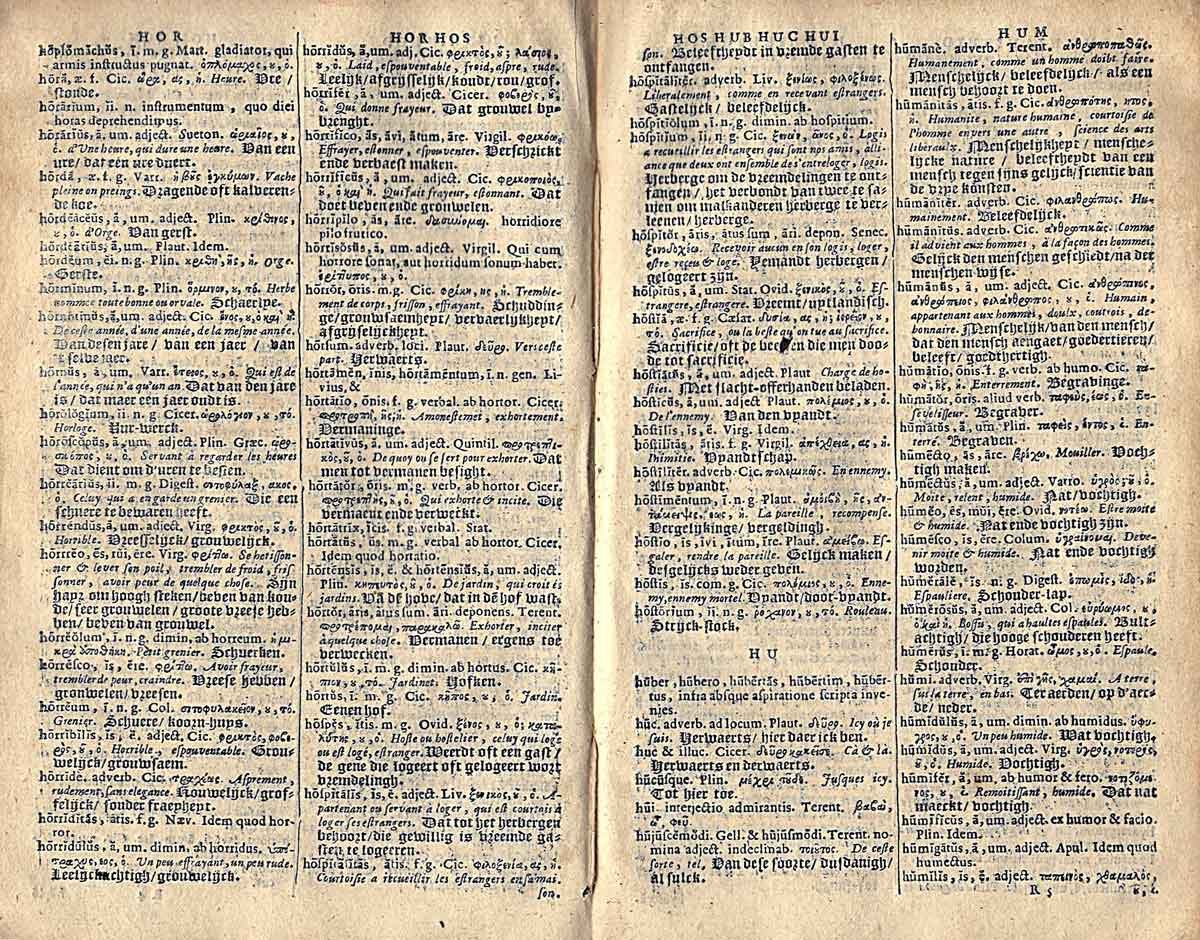 HOR
hōplŏmăchŭs, ī. m. g. Mart. gladiator, qui
armis instructus pugnat. ὁπλόμαχος, ȣ, ὁ.
hōră, æ. f. Cic. ὥρα, ας, ἡ. Heure. Vre /
stonde.
hōrārium, ii. n. instrumentum, quo diei
horas deprehendimus.
hōrārĭŭs, ā, um. adject. Sveton.
d'Vne heure, qui dure une heure. Van een
ure / dat een ure duert.
hōrdă, æ. f. g. Varr. Vache
pleine on preings. Dragende oft kalveren-
de koe.
hōrdĕācĕŭs, ā, um. adject. Plin. κρίθινος,
ȣ, ὁ. d'Orge. Van gerst.
hōrdĕārĭŭs, ā, um. Plaut. Idem.
hōrdĕum, ĕi. n. g. Plin. κριθὴ, ῆς, ἡ. Orge.
Gerste.
hōrmīnum, ī. n. g. Plin. ὅρμινον, ȣ, τό. Herbe
nommee toute bonne ou orvale. Scharleye.
hōrnŏtīnŭs, ā, um. adject. Cic.
De ceste année, d'une année, de la mesme année.
Van desen jare / van een jaer / van
't selve jaer.
hōrnŭs, ā, um. Varr. Qui est de
l'année, qui n'a qu'un an. Dat van den jare
is / dat maer een jaer oudt is.
hōrŏlŏgĭum, ii. n. g. Cicer. ὡρολόγιον, ȣ, τό.
Horloge. Uur-werck.
hōrŏscŏpŭs, ā, um. adject. Plin. Græc. ὡρο-
σκόπος, ȣ, ὁ. Servant à regarder les heures
Dat dient om d'uren te besien.
hōrrĕārĭŭs, ii. m. g. Digest. σιτοφύλαξ, ακος,
ὁ. Celuy qui a en garde un grenier. Die een
schuere te bewaren heeft.
hōrrēndŭs, ā, um. adject. Virg. φρικτὸς, ȣ, ὁ.
Horrible. Vreesselijck / grouwelijck.
hōrrĕo, ēs, rŭi, ēre. Virg. φρίττω. Se herisson-
ner & lever son poil, trembler de froid, fris
sonner, avoir peur de quelque chose. Sijn
hayr om hoogh steken / beven van kou-
de / seer grouwelen / groote vreese heb-
ben / beven van grouwel.
hōrrĕŏlum, ī. n. g. dimin. ab horreum.
Petit grenier. Schuerken.
hōrrēsco, ĭs, ĕre. φρίττω. Avoir frayeur,
trembler de peur, craindre. Vreese hebben /
grouwelen / vreesen.
hōrrĕum, ī. n. g. Col. σιτοφυλακεῖον, ȣ, τό.
Grenier. Schuere / koorn-huys.
hōrrĭbĭlis, is, ĕ. adject. Cic. φρικτὸς, φοβε-
ρὸς, ȣ, ὁ. Horrible, espouventable. Grou-
welijck / grouwsaem.
hōrrĭdē. adverb. Cic. τραχέως. Asprement,
rudement, sans elegance. Rouwelijck / grof-
felijck / sonder fraeyheyt.
hōrrĭdĭtās, ātis. f. g. Næv. Idem quod hor-
ror.
hōrrĭdŭlŭs, ā, um. dimin. ab horridus.
Un peu effrayant, un peu rude.
Leelijckachtigh / grouwelijck.
HOR HOS
hōrrĭdŭs, ā, um. adj. Cic. φρικτὸς, ȣ; λάσιος,
ȣ, ὁ. Laid, espouventable, froid, aspre, rude.
Leelijk / afgrijsselijk / koudt / rou / grof.
hōrrĭfĕr, ā, um. adject. Cicer. φοβερὸς, ȣ,
ὁ. Qui donne frayeur. Dat grouwel by-
brenght.
hōrrĭfĭco, ās, āvi, ātum, āre. Virgil.
Effrayer, estonner, espouventer. Verschrickt
ende verbaest maken.
hōrrĭfĭcŭs, ā, um. adject. Cic. φρικοποιὸς,
ȣ, ὁ καὶ ἡ. Qui fait frayeur, estonnant. Dat
doet beven ende grouwelen.
hōrrĭpĭlo, ās, āre. δασύνομαι. horridiore
pilo frutico.
hōrrĭsŏnŭs, ā, um. adject. Virgil. Qui cum
horrore sonat, aut horridum sonum habet.
hōrrŏr, ōris. m. g. Cic. φρίκη, ης, ἡ. Tremble-
ment de corps, frisson, effrayant. Schuddin-
ge / grouwsaemheyt / vervaerlijkheyt /
afgrijselijckheyt.
hōrsum. adverb. loci. Plaut. δεῦρο. Vers ceste
part. Herwaerts.
hōrtāmĕn, ĭnis, hōrtāmēntum, ī. n. gen. Li-
vius, &
hōrtātĭo, ōnis. f. g. verbal. ab hortor. Cicer.
προτροπὴ, ῆς, ἡ. Amonestemēt, exhortement.
Vermaninge.
hōrtātīvŭs, ā, um. adject. Quintil. προτρεπτι-
κὸς, ȣ, ὁ. De quoy on se sert pour exhorter. Dat
men tot vermanen besight.
hōrtātŏr, ōris. m. g. verb. ab hortor. Cicer.
Qui exhorte & incite. Die
vermaent ende verweckt.
hōrtātrīx, īcis. f. g. verbal. Stat.
hōrtātŭs, ūs. m. g. verbal ab hortor. Cicer.
Idem quod hortatio.
hōrtēnsis, is, ĕ. & hōrtēnsĭŭs, ā, um. adject.
Plin. κηπευτὸς, ȣ, ὁ. De jardin, qui croit és
jardins. Vā de hove / dat in dē hof wast.
hōrtŏr, āris, ātus sum, āri. deponens. Terent.
προτρέπομαι, παρακαλῶ. Exhorter, inciter
à quelque chose. Vermanen / ergens toe
verwecken.
hōrtŭlŭs, ī. m. g. dimin. ab hortus. Cic. κη-
πίον, ȣ, τό. Jardinet. Hofken.
hōrtŭs, ī. m. g. Cic. κῆπος, ȣ, ὁ. Jardin.
Een en hof.
hōspĕs, ĭtis. m. g. Ovid. ξένος, ȣ, ὁ; κατα-
λύτης, ȣ, ὁ. Hoste ou hostelier, celuy qui loge
ou est logé, estranger. Weerdt oft een gast /
de gene die logeert oft gelogeert wort
vremdelingh.
hōspĭtālis, is, ĕ. adject. Liv. ξενικὸς, ȣ, ὁ. A-
partenant ou servant à loger, qui est courtois à
loger ses estrangers. Dat tot het herbergen
behoort / die gewillig is vreemde ga-
sten te logeeren.
hōspĭtālĭtās, ātis. f. g. Cic. φιλοξενία, ας, ἡ.
Courtoisie a recueillir les estrangers en sa mai.
son.
HOS HUB HUC HUI
son. Beleeftheydt in vremde gasten te
ontfangen.
hōspĭtālĭtĕr. adverb. Liv. ξενίως, φιλοξένως.
Liberalement, comme en recevant estrangers.
Gastelijck / beleefdelijck.
hōspĭtĭŏlum, ī. n. g. dimin. ab hospitium.
hōspĭtĭum, ii. n. g. Cic. Logis
a recueillir les estrangers qui sont nos amis, alli-
ance que deux ont ensemble de s'entreloger, logis.
Herberge om de vreemdelingen te ont-
fangen / het verbondt van twee te sa-
men om malkanderen herberge te ver-
leenen / herberge.
hōspĭtŏr, āris, ātus sum, āri. depon. Senec.
ξενοδοχέω. Recevoir aucun en son logis, loger,
estre reçeu & logé. Yemandt herbergen /
gelogeert zijn.
hōspĭtŭs, ā, um. Stat. Ovid. ξενικὸς, ȣ, ὁ. Es-
trangere, estrangere. Vreemt / uytlandisch.
hōstĭă, æ. f. g. Cæsar. θυσία, ας, ἡ; ἱερεῖον, ȣ,
τό. Sacrifice, ou la beste qu'on tue au sacrifice.
Sacrificie / oft de beesten die men doo-
de tot sacrificie.
hōstĭātŭs, ā, um. adject. Plaut Chargé de ho-
sties. Met slacht-offerhanden beladen.
hōstĭcŭs, ā, um, adject. Plaut. πολέμιος, ȣ, ὁ.
De l'ennemy. Van den vyandt.
hōstīlis, is, ĕ. Virg. Idem.
hōstīlĭtās, ātis. f. g. Virgil. ἀπέχθεια, ας, ἡ.
Inimitié. Vyandtschap.
hōstīlĭtĕr. adverb. Cic. πολεμικῶς. En ennemy.
Als vyandt.
hōstīmēntum, ī. n. g. Plaut. ἀμοιβὴ, ῆς,
La pareille, recompense.
Vergelijkinge / vergeldingh.
hōstĭo, is, īvi, ītum, īre. Plaut. ἀμείβω. Es-
galer, rendre la pareille. Gelijck maken /
desgelijcks weder geven.
hōstis, is. com. g. Cic. πολέμιος, ȣ, ὁ. Enne-
my, ennemy mortel. Vyandt / doot-vyandt.
hōstōrĭum, ii. n. g. Rouleau.
Strijck-stock.
HU
hūber, hūbero, hūbērtās, hūbērtim, hūbēr-
tus, infra absque aspiratione scripta inve-
nies.
hūc. adverb. ad locum. Plaut. δεῦρο. Icy où je
suis. Herwaerts / hier daer ick ben.
huc & illuc. Cicer. Cà & là.
Herwaerts en derwaerts.
hūcūsque. Plin. μέχρι τοῦδε. Jusques icy.
Tot hier toe.
hūi. interjectio admirantis. Terent. βαβαὶ,
φεῦ.
hūjūscĕmŏdi. Gell. & hūjūsmŏdi. Terent. no-
mina adject. indeclinab. τοιοῦτος. De ceste
sorte, tel. Van dese soorte / dusdanigh /
al sulck.
HUM
hūmānē. adverb. Terent. ἀνθρωποπαθῶς.
Humanement, comme un homme doibt faire.
Menschelijck / beleefdelijck / als een
mensch behoort te doen.
hūmānĭtās, ātis. f. g. Cic. ἀνθρωπότης, ητος,
ἡ. Humanité, nature humaine, courtoisie de
l'homme envers une autre, science des arts
liberaulx. Menschelijkheyt / mensche-
lijcke nature / beleeftheydt van een
mensch tegen sijns gelijck / scientie van
de vrye konsten.
hūmānĭtĕr. adverb. Cic. φιλανθρώπως. Hu-
mainement. Beleefdelijck.
hūmānĭtŭs. adverb. Cic. ἀνθρωπικῶς. Comme
il advient aux hommes, à la façon des hommes.
Gelijck den menschen geschiedt / na der
menschen wijse.
hūmānŭs, ā, um. adject. Cic. ἀνθρώπινος,
ἀνθρώπειος, φιλάνθρωπος, ȣ, ὁ. Humain,
appartenant aux hommes, doulx, courtois, de-
bonnaire. Menschelijk / van den mensch /
dat den mensch aengaet / goedertieren /
beleeft / goedthertigh.
hŭmātĭo, ōnis. f. g. verb. ab humo. Cic. τα-
φὴ, ῆς, ἡ. Enterrement. Begravinge.
hŭmātŏr, ōris. aliud verb. ταφεὺς, έως, ὁ. En-
sevelisseur. Begraver.
hŭmātŭs, ā, um. Plin. ταφεὶς, έντος, ὁ. En-
terré. Begraven.
hūmēcto, ās, āre. βρέχω, Mouiller. Voch-
tigh maken.
hūmēctŭs, ā, um. adject. Varro. ὑγρὸς, ȣ, ὁ.
Moite, relent, humide. Nat / vochtigh.
hūmĕo, ēs, mŭi, ēre. Ovid. νοτέω. Estre moite
& humide. Nat ende vochtigh zijn.
hūmēsco, is, ĕre. Colum. ὑγραίνομαι. Deve-
nir moite & humide. Nat ende vochtigh
worden.
hŭmĕrālĕ, is. n. g. Digest. ἐπωμὶς, ίδος, ἡ.
Espauliere. Schouder-lap.
hŭmĕrōsŭs, ā, um. adject. Col. εὐρύωμος, ȣ,
ὁ καὶ ἡ. Bossu, qui a haultes espaules. Bult-
achtigh / die hooge schouderen heeft.
hŭmĕrŭs, ī. m. g. Horat. ὦμος, ȣ, ὁ. Espaule.
Schouder.
hŭmi. adverb. Virg. ἐπὶ γῆς, χαμαί. A terre,
sur la terre, en bas. Ter aerden / op d'aer-
de / neder.
hūmĭdŭlŭs, ā, um. dimin. ab humidus.
ȣ, ὁ. Un peu humide. Wat vochtigh.
hūmĭdŭs, ā, um. adject. Virg. ὑγρὸς, νοτερὸς,
ȣ, ὁ. Humide. Vochtigh.
hūmĭfĕr, ā, um. ab humor & fero.
ȣ, ὁ. Remoitissant, humide. Dat nat
maeckt / vochtigh.
hūmĭfĭcŭs, ā, um. adject. ex humor & facio.
Plin. Idem.
hūmĭgātŭs, ā, um. adject. Apul. Idem quod
humectus.
hŭmĭlis, is, ĕ. adject. ταπεινὸς, χθαμαλὸς,
R 5
ȣ, ὁ.